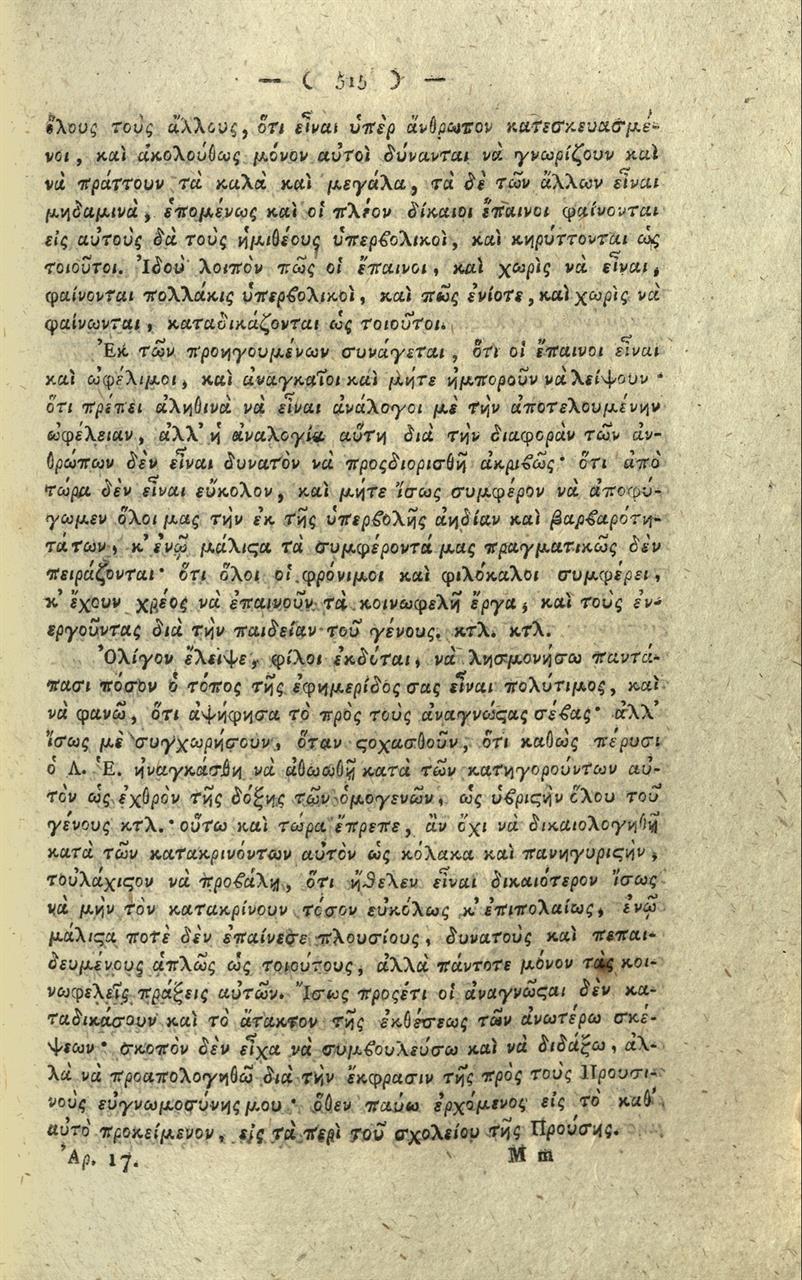 — ( 515 ) —
ὅλους τοὺς ἄλλους, ὅτι εἶναι ὑπὲρ ἄνθρωπον κατεσκευασμέ-
νοι, καὶ ἀκολούθως μόνον αὐτοὶ δύνανται νὰ γνωρίζουν καὶ
νὰ πράττουν τὰ καλὰ καὶ μεγάλα, τὰ δὲ τῶν ἄλλων εἶναι
μηδαμινὰ, ἑπομένως καὶ οἱ πλέον δίκαιοι ἔπαινοι φαίνονται
εἰς αὐτοὺς δὰ τοὺς ἡμιθέους ὑπερβολικοὶ, καὶ κηρύττονται ὡς
τοιοῦτοι. Ἰδοὺ λοιπὸν πῶς οἱ ἔπαινοι, καὶ χωρὶς νὰ εἶναι,
φαίνονται πολλάκις ὑπερβολικοὶ, καὶ πῶς ἐνίοτε, καὶ χωρὶς νὰ
φαίνωνται, καταδικάζονται ὡς τοιοῦτοι.
Ἐκ τῶν προηγουμένων συνάγεται, ὅτι οἱ ἔπαινοι εἶναι
καὶ ὠφέλιμοι, καὶ ἀναγκαῖοι καὶ μήτε ἠμποροῦν νὰ λείψουν·
ὅτι πρέπει ἀληθινὰ νὰ εἶναι ἀνάλογοι μὲ τὴν ἀποτελουμένην
ὠφέλειαν, ἀλλ' ἡ ἀναλογία αὕτη διὰ τὴν διαφορὰν τῶν ἀν-
θρώπων δὲν εἶναι δυνατὸν νὰ προςδιορισθῇ ἀκριβῶς· ὅτι ἀπὸ
τώρα δὲν εἶναι εὔκολον, καὶ μήτε ἴσως συμφέρον νὰ ἀποφύ-
γωμεν ὅλοι μας τὴν ἐκ τῆς ὑπερβολῆς ἀηδίαν καὶ βαρβαρότη-
τάτων, κ' ἐνῷ μάλιϛα τὰ συμφέροντά μας πραγματικῶς δὲν
πειράζονται· ὅτι ὅλοι οἱ φρόνιμοι καὶ φιλόκαλοι συμφέρει,
κ' ἔχουν χρέος νὰ ἐπαινοῦν τὰ κοινωφελῆ ἔργα, καὶ τοὺς ἐν-
εργοῦντας διὰ τὴν παιδείαν τοῦ γένους. κτλ. κτλ.
Ὀλίγον ἔλειψε, φίλοι ἐκδόται, νὰ λησμονήσω παντά-
πασι πόσον ὁ τόπος τῆς ἐφημερίδος σας εἶναι πολύτιμος, καὶ
νὰ φανῶ, ὅτι ἀψήφησα τὸ πρὸς τοὺς ἀναγνώϛας σέβας· ἀλλ'
ἴσως μὲ συγχωρήσουν, ὅταν ϛοχασθοῦν, ὅτι καθὼς πέρυσι
ὁ Λ. Ἑ. ἠναγκάσθη νὰ ἀθωωθῇ κατὰ τῶν κατηγορούντων αὐ-
τὸν ὡς ἐχθρὸν τῆς δόξης τῶν ὁμογενῶν, ὡς ὑβριϛὴν ὅλου τοῦ
γένους κτλ.· οὕτω καὶ τώρα ἔπρεπε, ἂν ὄχι νὰ δικαιολογηθῇ
κατὰ τῶν κατακρινόντων αὐτὸν ὡς κόλακα καὶ πανηγυριϛὴν,
τοὐλάχιϛον νὰ προβάλῃ, ὅτι ἤθελεν εἶναι δικαιότερον ἴσως
νὰ μὴν τὸν κατακρίνουν τόσον εὐκόλως κ' ἐπιπολαίως, ἐνῷ
μάλιϛα ποτὲ δὲν ἐπαίνεσε πλουσίους, δυνατοὺς καὶ πεπαι-
δευμένους ἁπλῶς ὡς τοιούτους, ἀλλὰ πάντοτε μόνον τὰς κοι-
νωφελεῖς πράξεις αὐτῶν. Ἴσως προςέτι οἱ ἀναγνῶϛαι δὲν κα-
ταδικάσουν καὶ τὸ ἄτακτον τῆς ἐκθέσεως τῶν ἀνωτέρω σκέ-
ψεων· σκοπὸν δὲν εἶχα νὰ συμβουλεύσω καὶ νὰ διδάξω, ἀλ-
λὰ νὰ προαπολογηθῶ διὰ τὴν ἔκφρασιν τῆς πρὸς τοὺς Προυσι-
νοὺς εὐγνωμοσύνης μου· ὅθεν παύω ἐρχόμενος εἰς τὸ καθ'
αὑτὸ προκείμενον, εἰς τὰ περὶ τοῦ σχολείου τῆς Προύσης.
Ἀρ. 17. M m